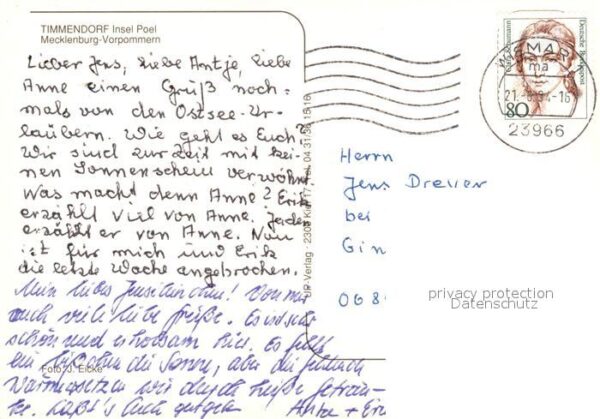 TIMMENDORF Insel Poel
Mecklenburg-Vorpommern
Lieber Jens, liebe Antje, liebe
Anne einen Gruß noch-
mals von den Ostsee-Ur-
laubern. Wie geht es Euch?
Wir sind zur Zeit mit kei-
nen Sonnenschein verwöhnt.
Was macht denn Anne? Erik
erzählt viel von Anne. Jeden
erzählt er von Anne. Nun
ist für mich und Erik
die letzte Woche angebrochen.
Mein liebes! Von mir
auch viele liebe Grüße. Es ist sehr
schön und erholsam hier. Es fehlt
ein bißchen die Sonne, aber die
wir durch heiße Geträn-
ke. Laßt's Euch gut gehen
Foto: J. Eicke
UP-Verlag 2305 Tel. 04 31/
Deutsche Bundespost
80
WISMAR
ma
21.-6.94-16
23966
Herrn
Jens
bei
Gin
068
privacy protection
Datenschutz